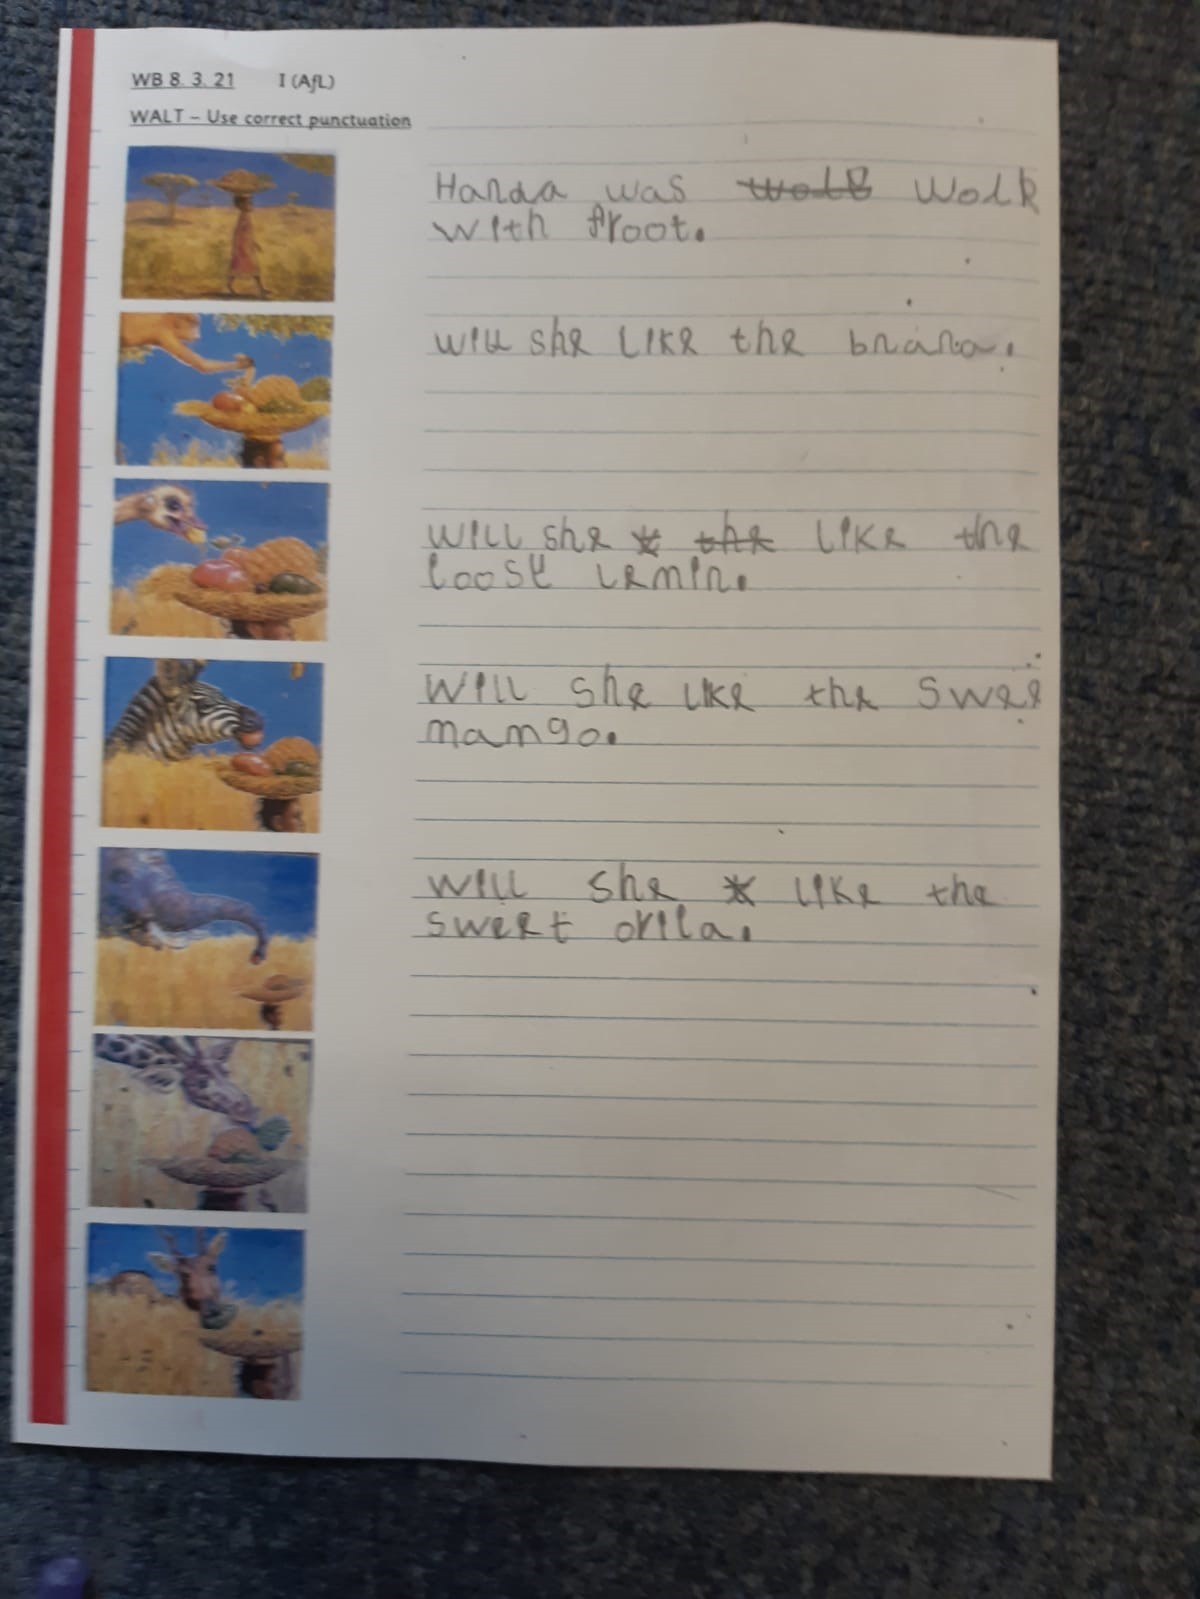 WB 8. 3. 21 I (AfL)
WALT – Use correct punctuation
Handa was wolk
with froot.
will she like the bnana.
Will she like the
loose lemin.
Will she like the swee
mango.
will she like the
sweet orila.